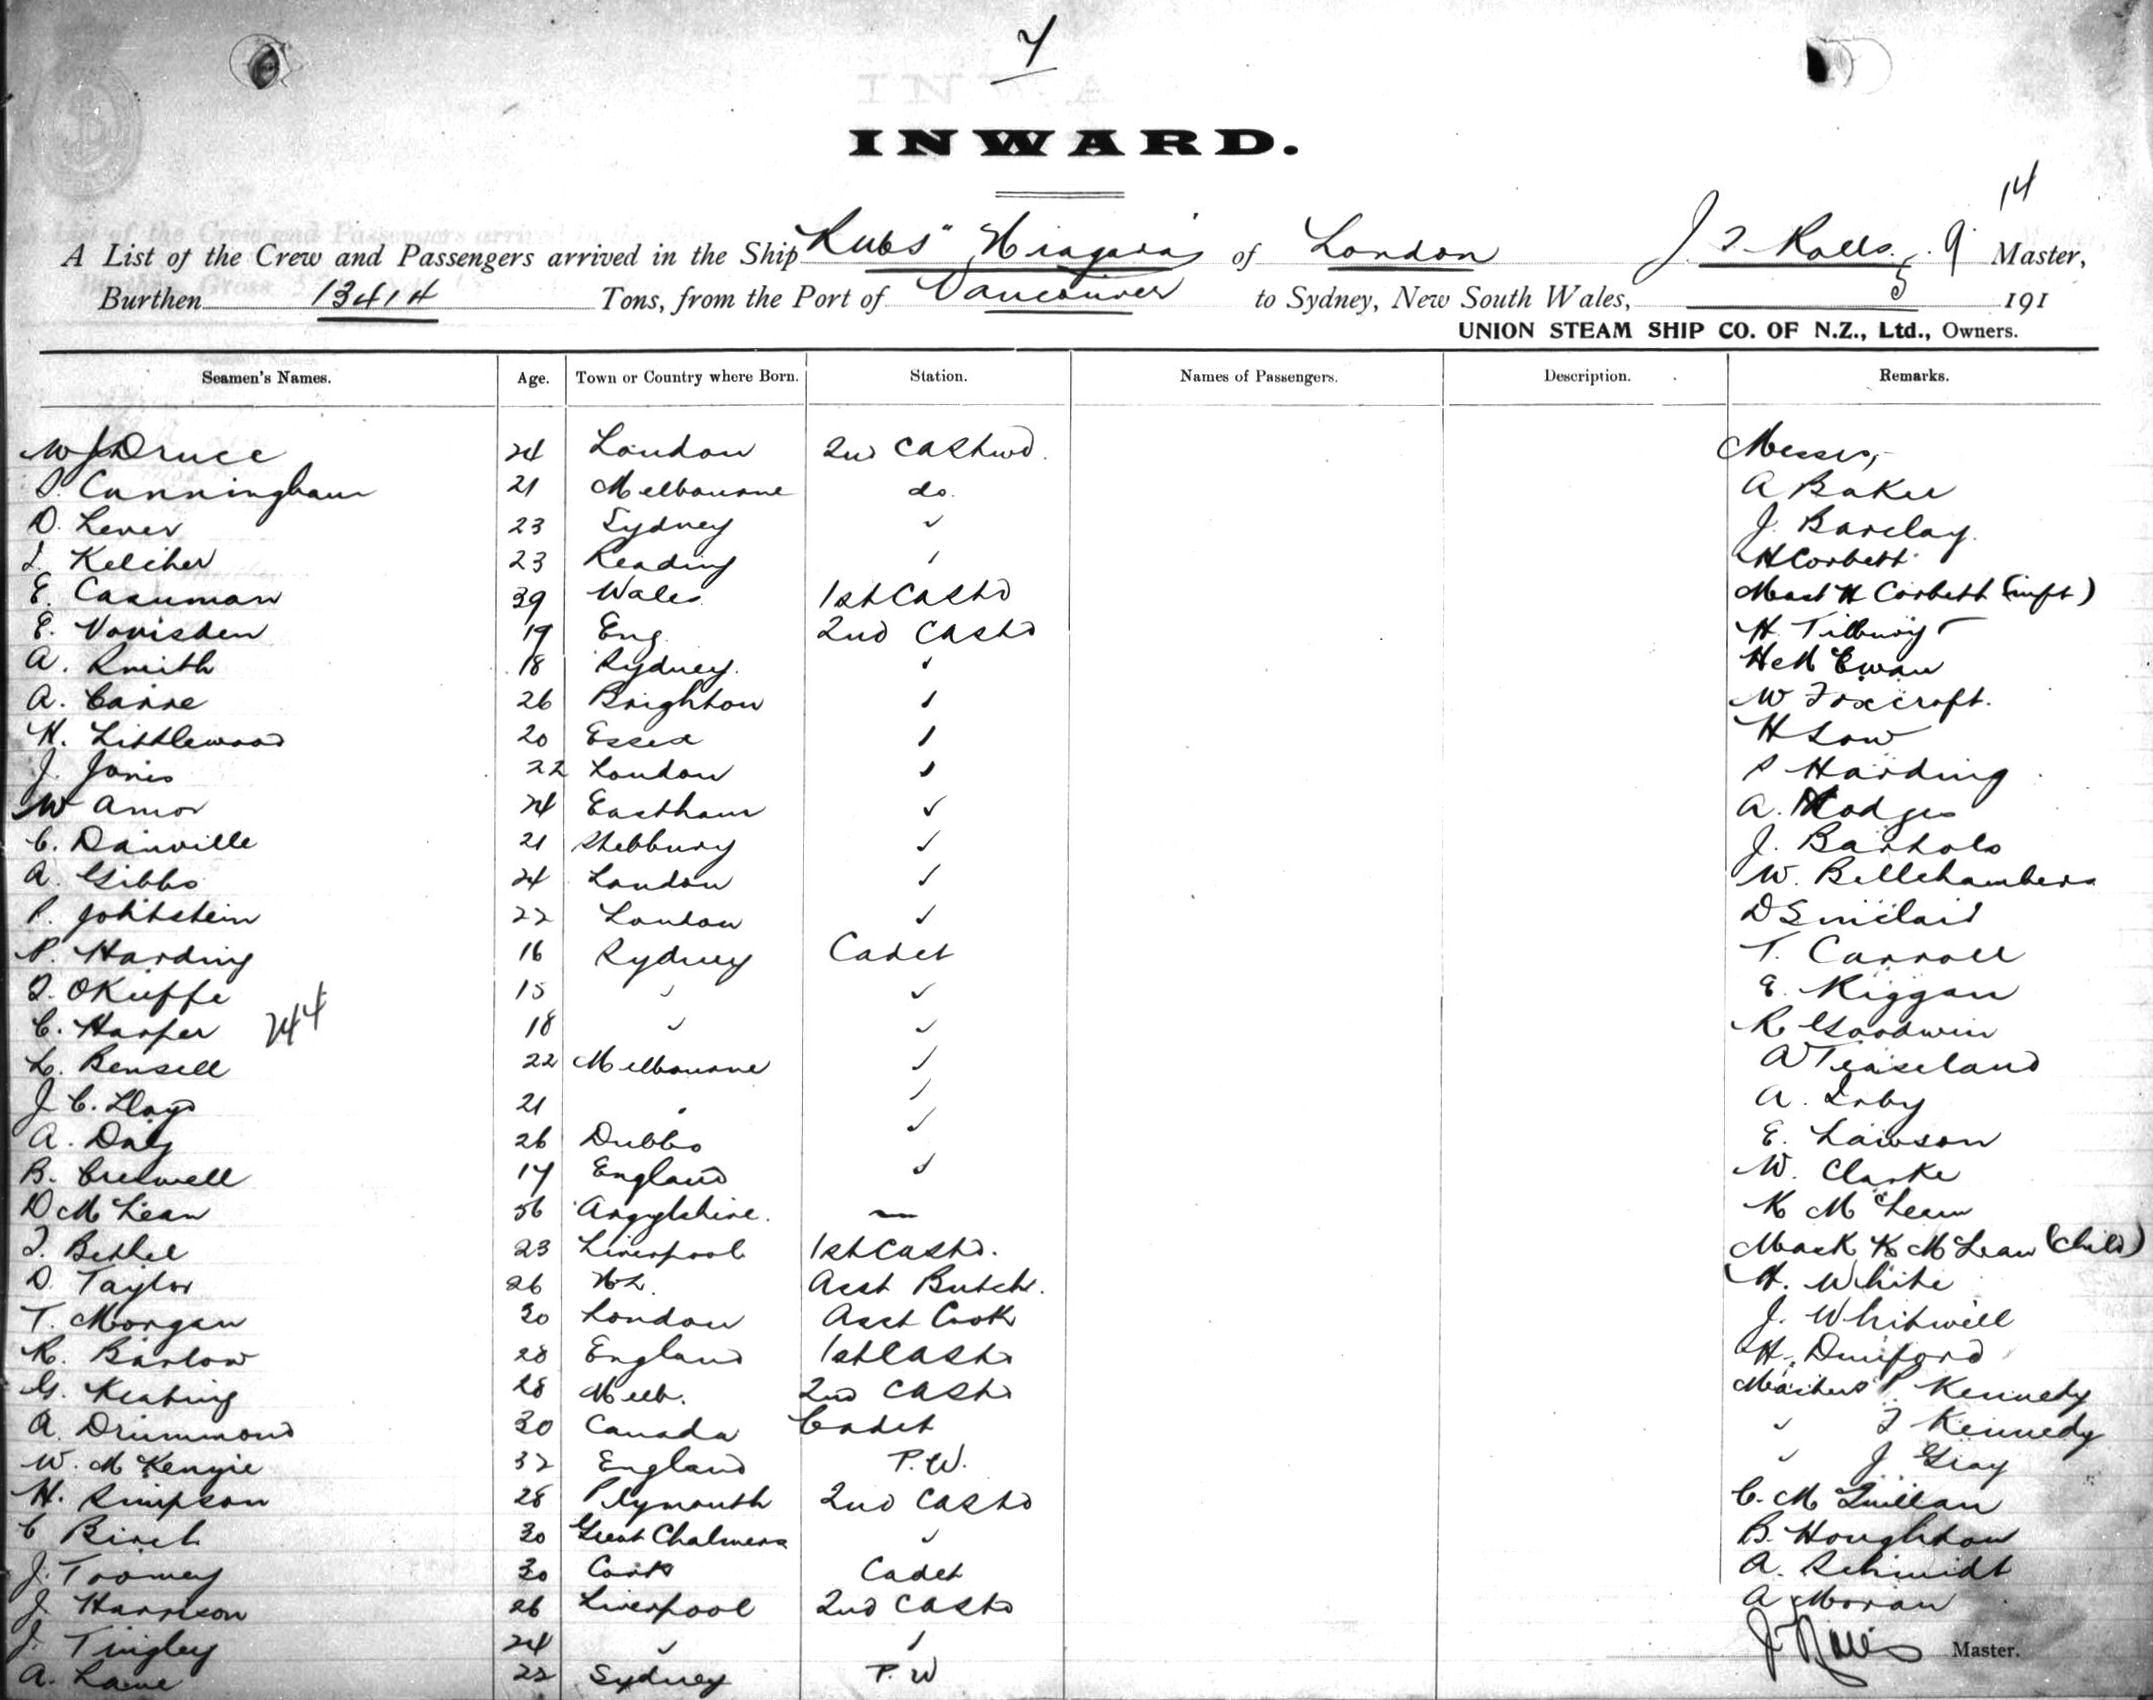 7
INWARD.
14
A List of the Crew and Passengers arrived in the Ship "Niagara" of London J. T. Rolls. Master,
Burthen 13414 Tons, from the Port of Vancouver to Sydney, New South Wales, 9 5 191
UNION STEAM SHIP CO. OF N.Z., Ltd., Owners.
Seamen's Names. Age. Town or Country where Born. Station. Names of Passengers. Description. Remarks.
W J Druce 24 London 2nd Messrs,
Cunningham 21 Melbourne do. A Baker
D. Lever 23 Sydney " J. Barclay.
Kelcher 23 Reading " H Corbett
E. Casuman 39 Wales 1st Mast H Corbett (inft)
E. 19 Eng. 2nd H. Tilbury
A. Smith 18 Sydney. " H McEwan
A. Carre 26 Brighton " W Foxcroft.
H. Littlewood 20 Essex " H Low
J. Jones 22 London " S Harding
W Amor 24 Eastham " A. Hodges
C. Danville 21 " J. Barthols
A. Gibbs 24 London " W. Bellchambers
P. 22 London " D Sinclair
P. Harding 16 Sydney Cadet T. Carroll
O'Kieffe 15 " " E. Riggan
C. Harper 244 18 " " R Goodwin
L. Bensell 22 Melbourne " A Teaseland
J. C. Lloyd 21 " " A. Irby
A. Daly 26 Dubbo " E. Lawson
B. Creswell 17 England " W. Clarke
D McLean 56 Argylshire. — K McLean
Bethel 23 Liverpool 1st Mast K McLean (child)
D. Taylor 26 NZ. Asst Butchr. H. White
T. Morgan 30 London Asst Cook J. Whitwell
R. Barlow 28 England 1st H. Duniford
G. Keating 28 Melb. 2nd Masters P Kennedy
A. Drummond 30 Canada Cadet " Kennedy
W. McKenzie 32 England P.W. " J Gray
H. Simpson 28 Plymouth 2nd C. McQuillan
C Birch 30 Chalmers " B. Houghton
J. Toomey 30 Cork Cadet A. Schmidt
J. Harrison 26 Liverpool 2nd A Moran
J. Tingley 24 " " Master.
A. Lane 22 Sydney P.W